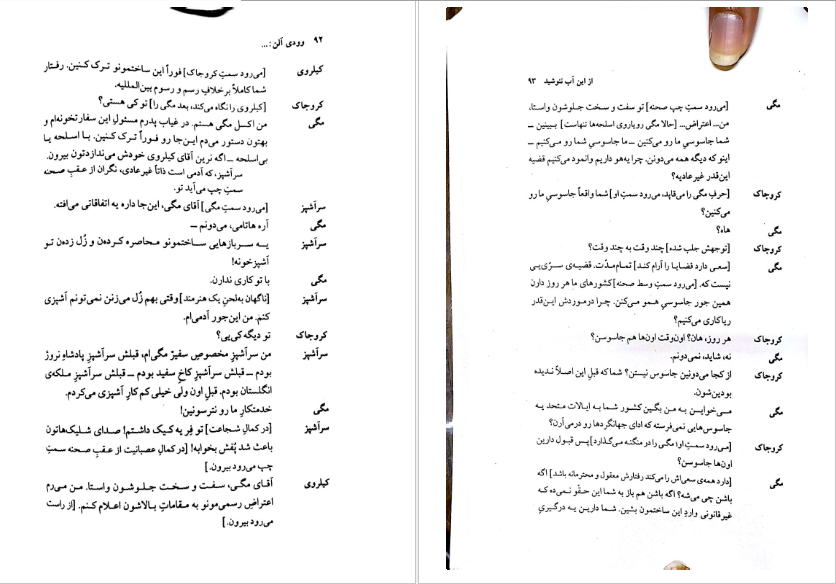 ۹۲ وودی آلن: ...
کیلروی [می‌رود سمتِ کروجاک] فوراً این ساختمونو ترک کنین. رفتار
شما کاملاً بر خلافِ رسم و رسوم بین‌المللیه.
کروجاک [کیلروی را نگاه می‌کند، بعد مگی را] تو کی هستی؟
مگی من اکسل مگی هستم. در غیاب پدرم مسئولِ این سفارتخونه‌ام و
بهتون دستور می‌دم این‌جا رو فوراً ترک کنین. با اسلحه یا
بی‌اسلحه ـ اگه نرین آقای کیلروی خودش می‌ندازدتون بیرون.
سرآشپز، که آدمی است ذاتاً غیرعادی، نگران از عقبِ صحنه
سمتِ چپ می‌آید تو.
سرآشپز [می‌رود سمتِ مگی] آقای مگی، این‌جا داره یه اتفاقاتی می‌افته.
مگی آره هاتامی، می‌دونم ـ
سرآشپز یه سربازهایی ساختمونو محاصره کرده‌ن و زُل زده‌ن تو
آشپزخونه!
مگی با تو کاری ندارن.
سرآشپز [ناگهان به‌لحنِ یک هنرمند] وقتی بهم زُل می‌زنن نمی‌تونم آشپزی
کنم. من این‌جور آدمی‌ام.
کروجاک تو دیگه کی‌یی؟
سرآشپز من سرآشپز مخصوصِ سفیرْ مگی‌ام، قبلش سرآشپزِ پادشاهِ نروژ
بودم ـ قبلش سرآشپزِ کاخ سفید بودم ـ قبلش سرآشپزِ ملکه‌ی
انگلستان بودم. قبلِ اون ولی خیلی کم کارِ آشپزی می‌کردم.
مگی خدمتکارِ ما رو نترسونین!
سرآشپز [در کمالِ شجاعت] تو فِر یه کیک داشتم! صدای شلیک‌هاتون
باعث شد پُفش بخوابه! [در کمال عصبانیت از عقبِ صحنه سمتِ
چپ می‌رود بیرون.]
کیلروی آقای مگی، سفت و سخت جلوشون واستا. من می‌رم
اعتراضِ رسمی‌مونو به مقاماتِ بالاشون اعلام کنم. [از راست
می‌رود بیرون.]
از این آب ننوشید ۹۳
مگی [می‌رود سمتِ چپِ صحنه] تو سفت و سخت جلوشون واستا،
من... اعتراض... [حالا مگی رویاروی اسلحه‌ها تنهاست] ببینین ـ
شما جاسوسیِ ما رو می‌کنین ـ ما جاسوسیِ شما رو می‌کنیم ـ
اینو که دیگه همه می‌دونن. چرا یه‌هو داریم وانمود می‌کنیم قضیه
این‌قدر غیرعادیه؟
کروجاک [حرفِ مگی را می‌قاپد، می‌رود سمتِ او] شما واقعاً جاسوسیِ ما رو
می‌کنین؟
مگی هاه؟
کروجاک [توجهش جلب شده] چند وقت به چند وقت؟
مگی [سعی دارد قضایا را آرام کند] تمام‌مدّت. قضیه‌ی سرّی‌یی
نیست که. [می‌رود سمتِ وسط صحنه] کشورهای ما هر روز دارن
همین جور جاسوسیِ همو می‌کنن. چرا درموردش این‌قدر
ریاکاری می‌کنیم؟
کروجاک هر روز، هان؟ اون‌وقت اون‌ها هم جاسوسن؟
مگی نه، شاید، نمی‌دونم.
کروجاک از کجا می‌دونین جاسوس نیستن؟ شما که قبلِ این اصلاً ندیده
بودین‌شون.
مگی می‌خواین به من بگین کشور شما به ایالات متحد یه
جاسوس‌هایی نمی‌فرسته که ادای جهانگردها رو درمی‌آرن؟
کروجاک [می‌رود سمتِ او؛ مگی را در منگنه می‌گذارد] پس قبول دارین
اون‌ها جاسوسن؟
مگی [دارد همه‌ی سعی‌اش را می‌کند رفتارش معقول و محترمانه باشد] اگه
باشن چی می‌شه؟ اگه باشن هم باز به شما این حقّو نمی‌ده که
غیرقانونی واردِ این ساختمون بشین. شما دارین یه درگیریِ